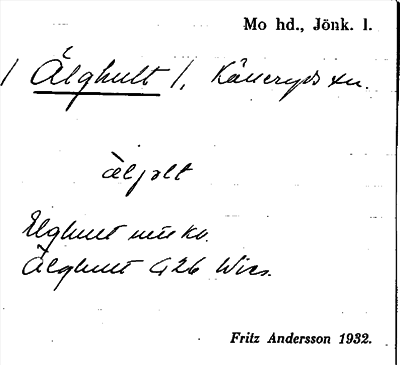 Mo hd., Jönk. l.
/ Älghult /, Kålleryds sn.
äljολt
Elghult
Älghult G26 Wies.
Fritz Andersson 1932.